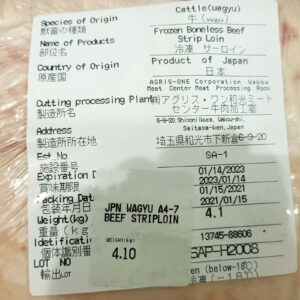 Species of Origin Cattle(wagyu)
獣畜の種類 牛(wagyu)
Name of Products Frozen Boneless Beef
Strip Loin
部位名 冷凍 サーロイン
Country of Origin Product of Japan
原産国 日本
AGRIS-ONE Corporation Wakou
Meat Center Meat Processing Room
Cutting processing Plant
㈱アグリス・ワン和光ミート
製造所名 センター牛肉加工室
6-9-20, Shimoni
Saitama-ken, Japan
Address
製造所所在地 埼玉県和光市下新倉6-9-20
Est No SA-1
施設番号
Expiration D 01/14/2023
賞味期限 2023/01/14
acking Date 01/15/2021
包装年月日 2021/01/15
Weight(kg) 4.1
重量(kg
Idetificati 13745-88606
個体識別番
LOT NO SAP-H2008
輸出
JPN WAGYU A4-7
BEEF STRIPLOIN
WEIGHT(KG)
4.10
en (below-18℃)
冷凍(-18℃